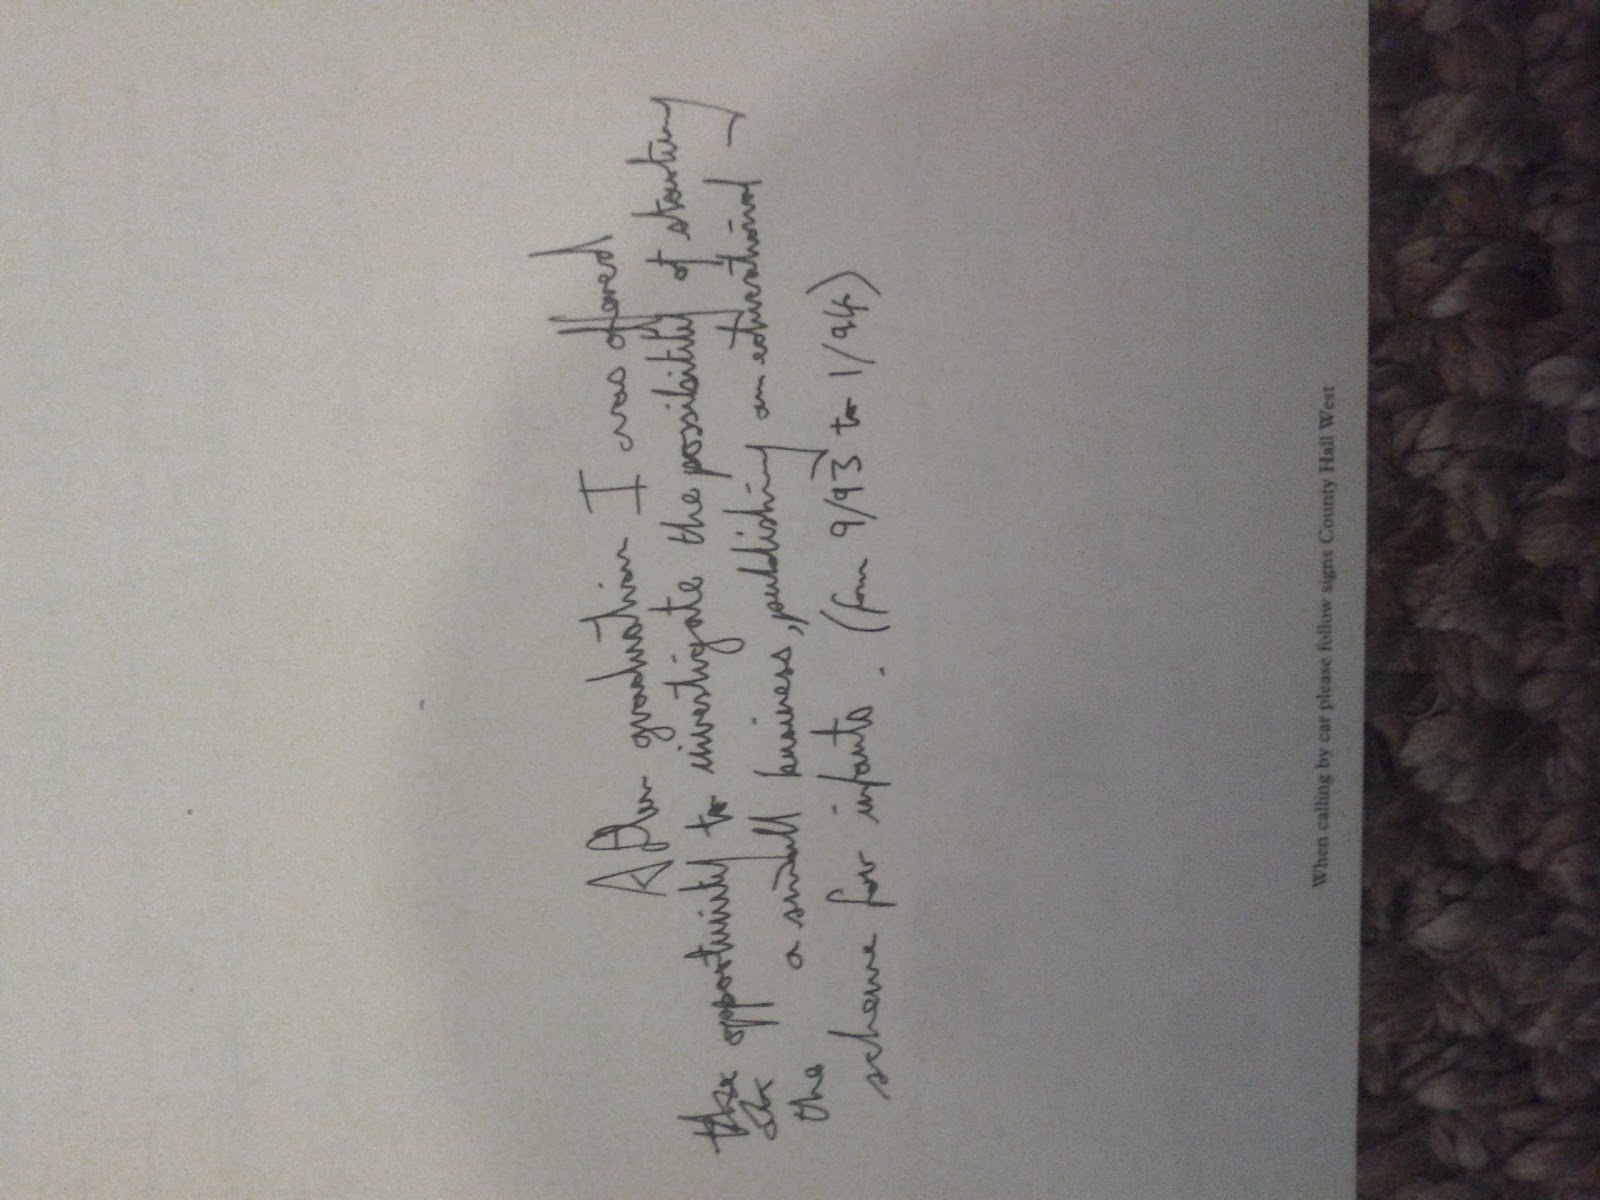 After graduation I was offered
the opportunity to investigate the possibility of starting
a small business, publishing an educational
the
scheme for infants. (from 9/93 to 1/94)
When calling by car please follow signs County Hall West